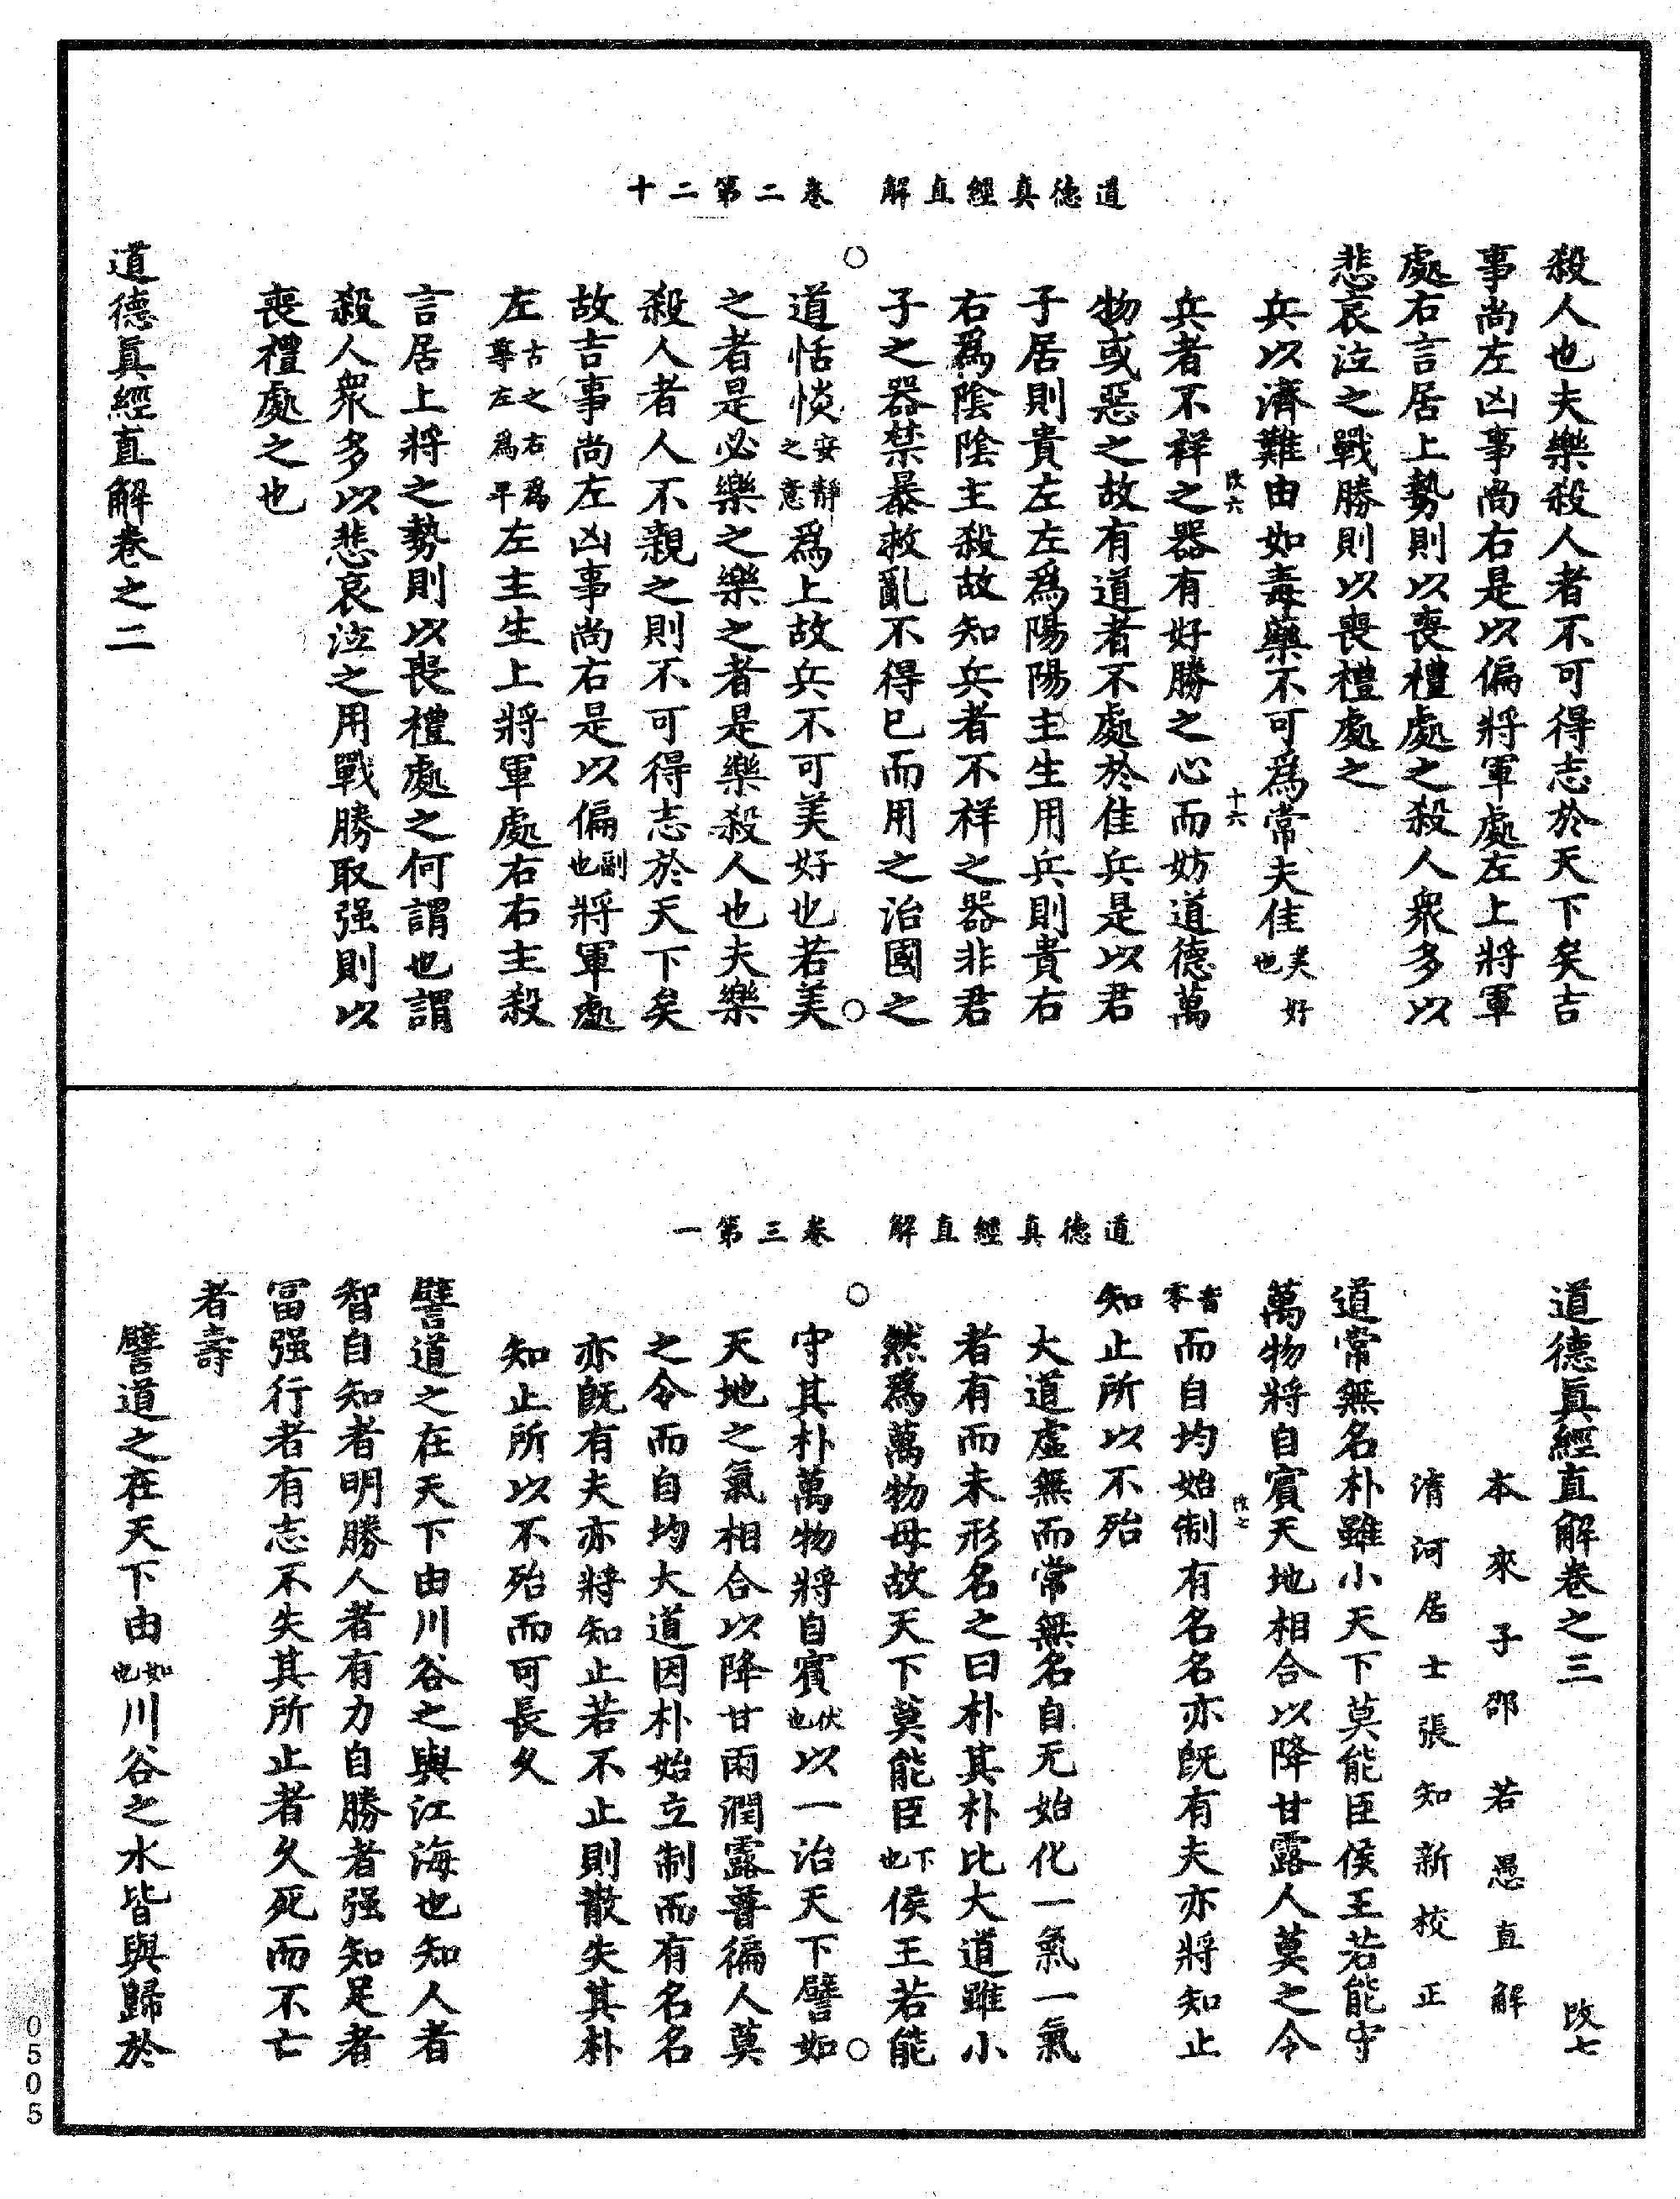 道德真經直解　卷二第二十
殺人也夫樂殺人者不可得志於天下矣吉
事尚左凶事尚右是以偏將軍處左上將軍
處右言居上勢則以喪禮處之殺人衆多以
悲哀泣之戰勝則以喪禮處之
兵以濟難由如毒藥不可爲常夫佳美好也
改六　十六
兵者不祥之器有好勝之心而妨道德萬
物或惡之故有道者不處於佳兵是以君
子居則貴左左爲陽陽主生用兵則貴右
右爲陰陰主殺故知兵者不祥之器非君
子之器禁暴救亂不得已而用之治國之
○　○
道恬惔安靜之意爲上故兵不可美好也若美
之者是必樂之樂之者是樂殺人也夫樂
殺人者人不親之則不可得志於天下矣
故吉事尚左凶事尚右是以偏副也將軍處
左古之右爲尊左爲平左主生上將軍處右右主殺
言居上將之勢則以喪禮處之何謂也謂
殺人衆多以悲哀泣之用戰勝取强則以
喪禮處之也
道德眞經直解卷之二
道德真經直解　卷三第一
道德眞經直解卷之三　改七
本來子邵若愚直解
清河居士張知新校正
道常無名朴雖小天下莫能臣侯王若能守
萬物將自賓天地相合以降甘露人莫之令
改七
音零而自均始制有名名亦既有夫亦將知止
知止所以不殆
大道虛無而常無名自无始化一氣一氣
者有而未形名之曰朴其朴比大道雖小
然爲萬物母故天下莫能臣下也侯王若能
○　○
守其朴萬物將自賓伏也以一治天下譬如
天地之氣相合以降甘雨潤露普徧人莫
之令而自均大道因朴始立制而有名名
亦既有夫亦將知止若不止則散失其朴
知止所以不殆而可長久
譬道之在天下由川谷之與江海也知人者
智自知者明勝人者有力自勝者强知足者
冨强行者有志不失其所止者久死而不亡
者壽
譬道之在天下由如也川谷之水皆與歸於
0505